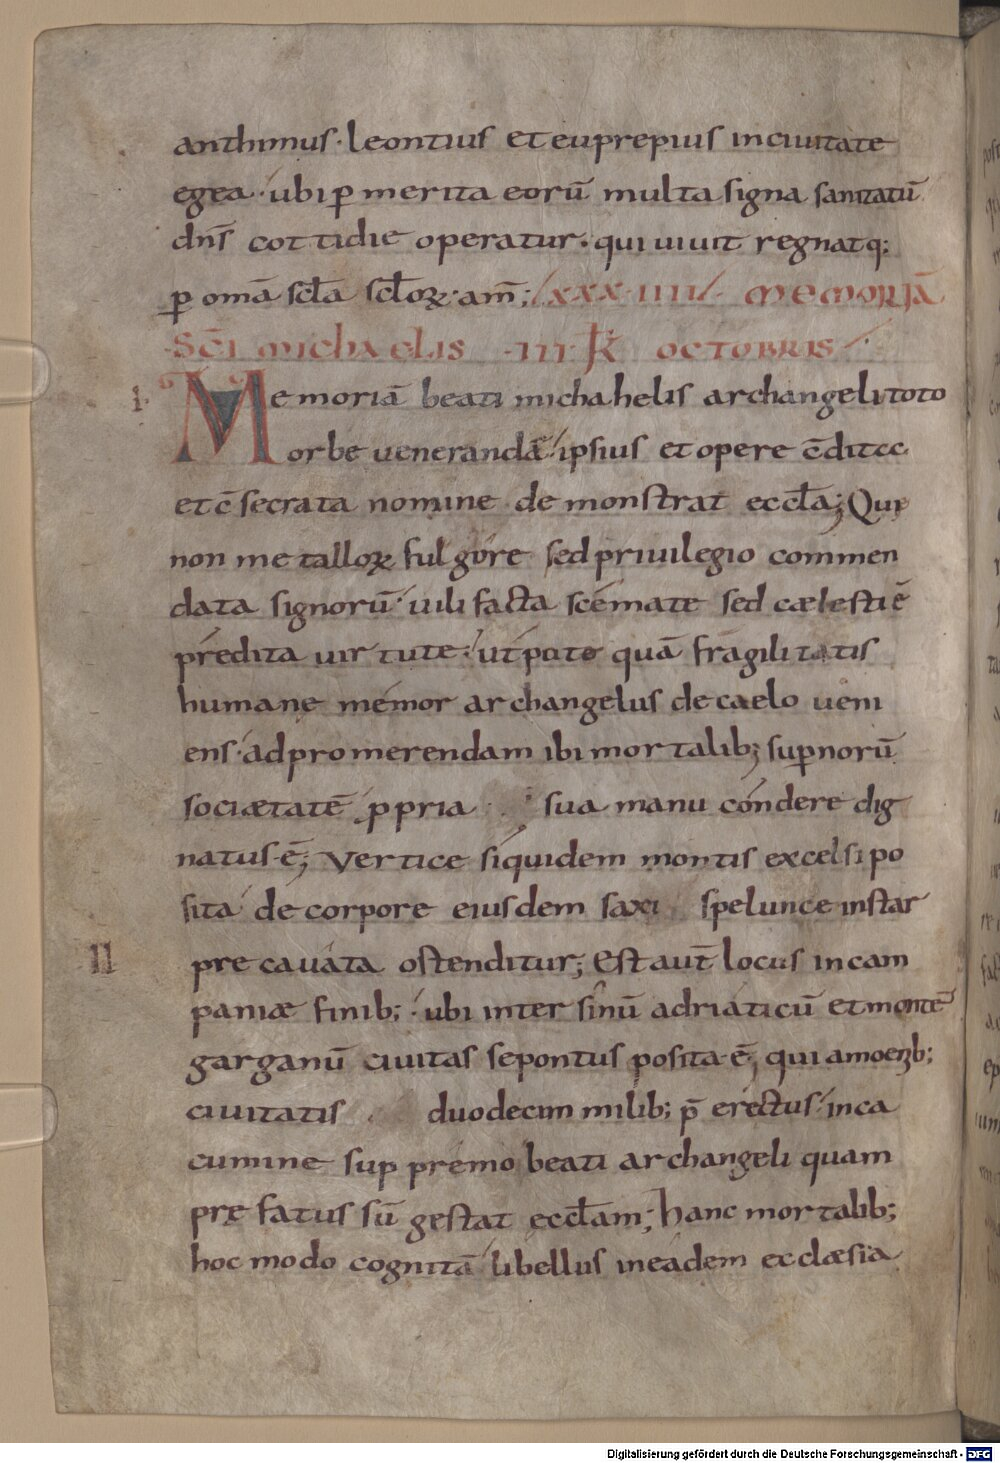 anthimus· leontius et euprepius inciuitate
egea· ubi ꝑ merita eorū multa signa sanitatū
dn̄s cottidie operatur· qui uiuit regnatq;
ꝑ omā scła scłoꝝ· am̄;
XXX·IIII· MEMORIĀ
SC̄I MICHAELIS ·III·K̄ OCTOBRIS
i· Memoriā beati michahelis archangeli toto
orbe uenerandā ipsius et opere c̄dite
et c̄secrata nomine demonstrat̄ eccła; Que
non metalloꝝ fulgore sed priuilegio commen
data signorū uili facta scemate sed cælesti ē
predita uirtute· quā fragilitatis
humane memor archangelus de caelo ueni
ens· ad promerendam ibi mortalib; suꝑnorū
sociætatē ꝓpria sua manu condere dig
natus·ē; Vertice siquidem montis excelsi po
sita de corpore eiusdem saxi spelunce instar
II precauata ostenditur; Est aut̄ locus in cam
paniæ finib;· ubi inter sinū adriaticū et montē
garganū ciuitas sepontus posita·ē, qui a moenib;
ciuitatis duodecim milib; p̄ erectus· in ca
cumine supremo beati archangeli quam
prefatus sū gestat eccłam; hanc mortalib;
hoc modo cognitā libellus in eadem ecclæsia
Digitalisierung gefördert durch die Deutsche Forschungsgemeinschaft - DFG